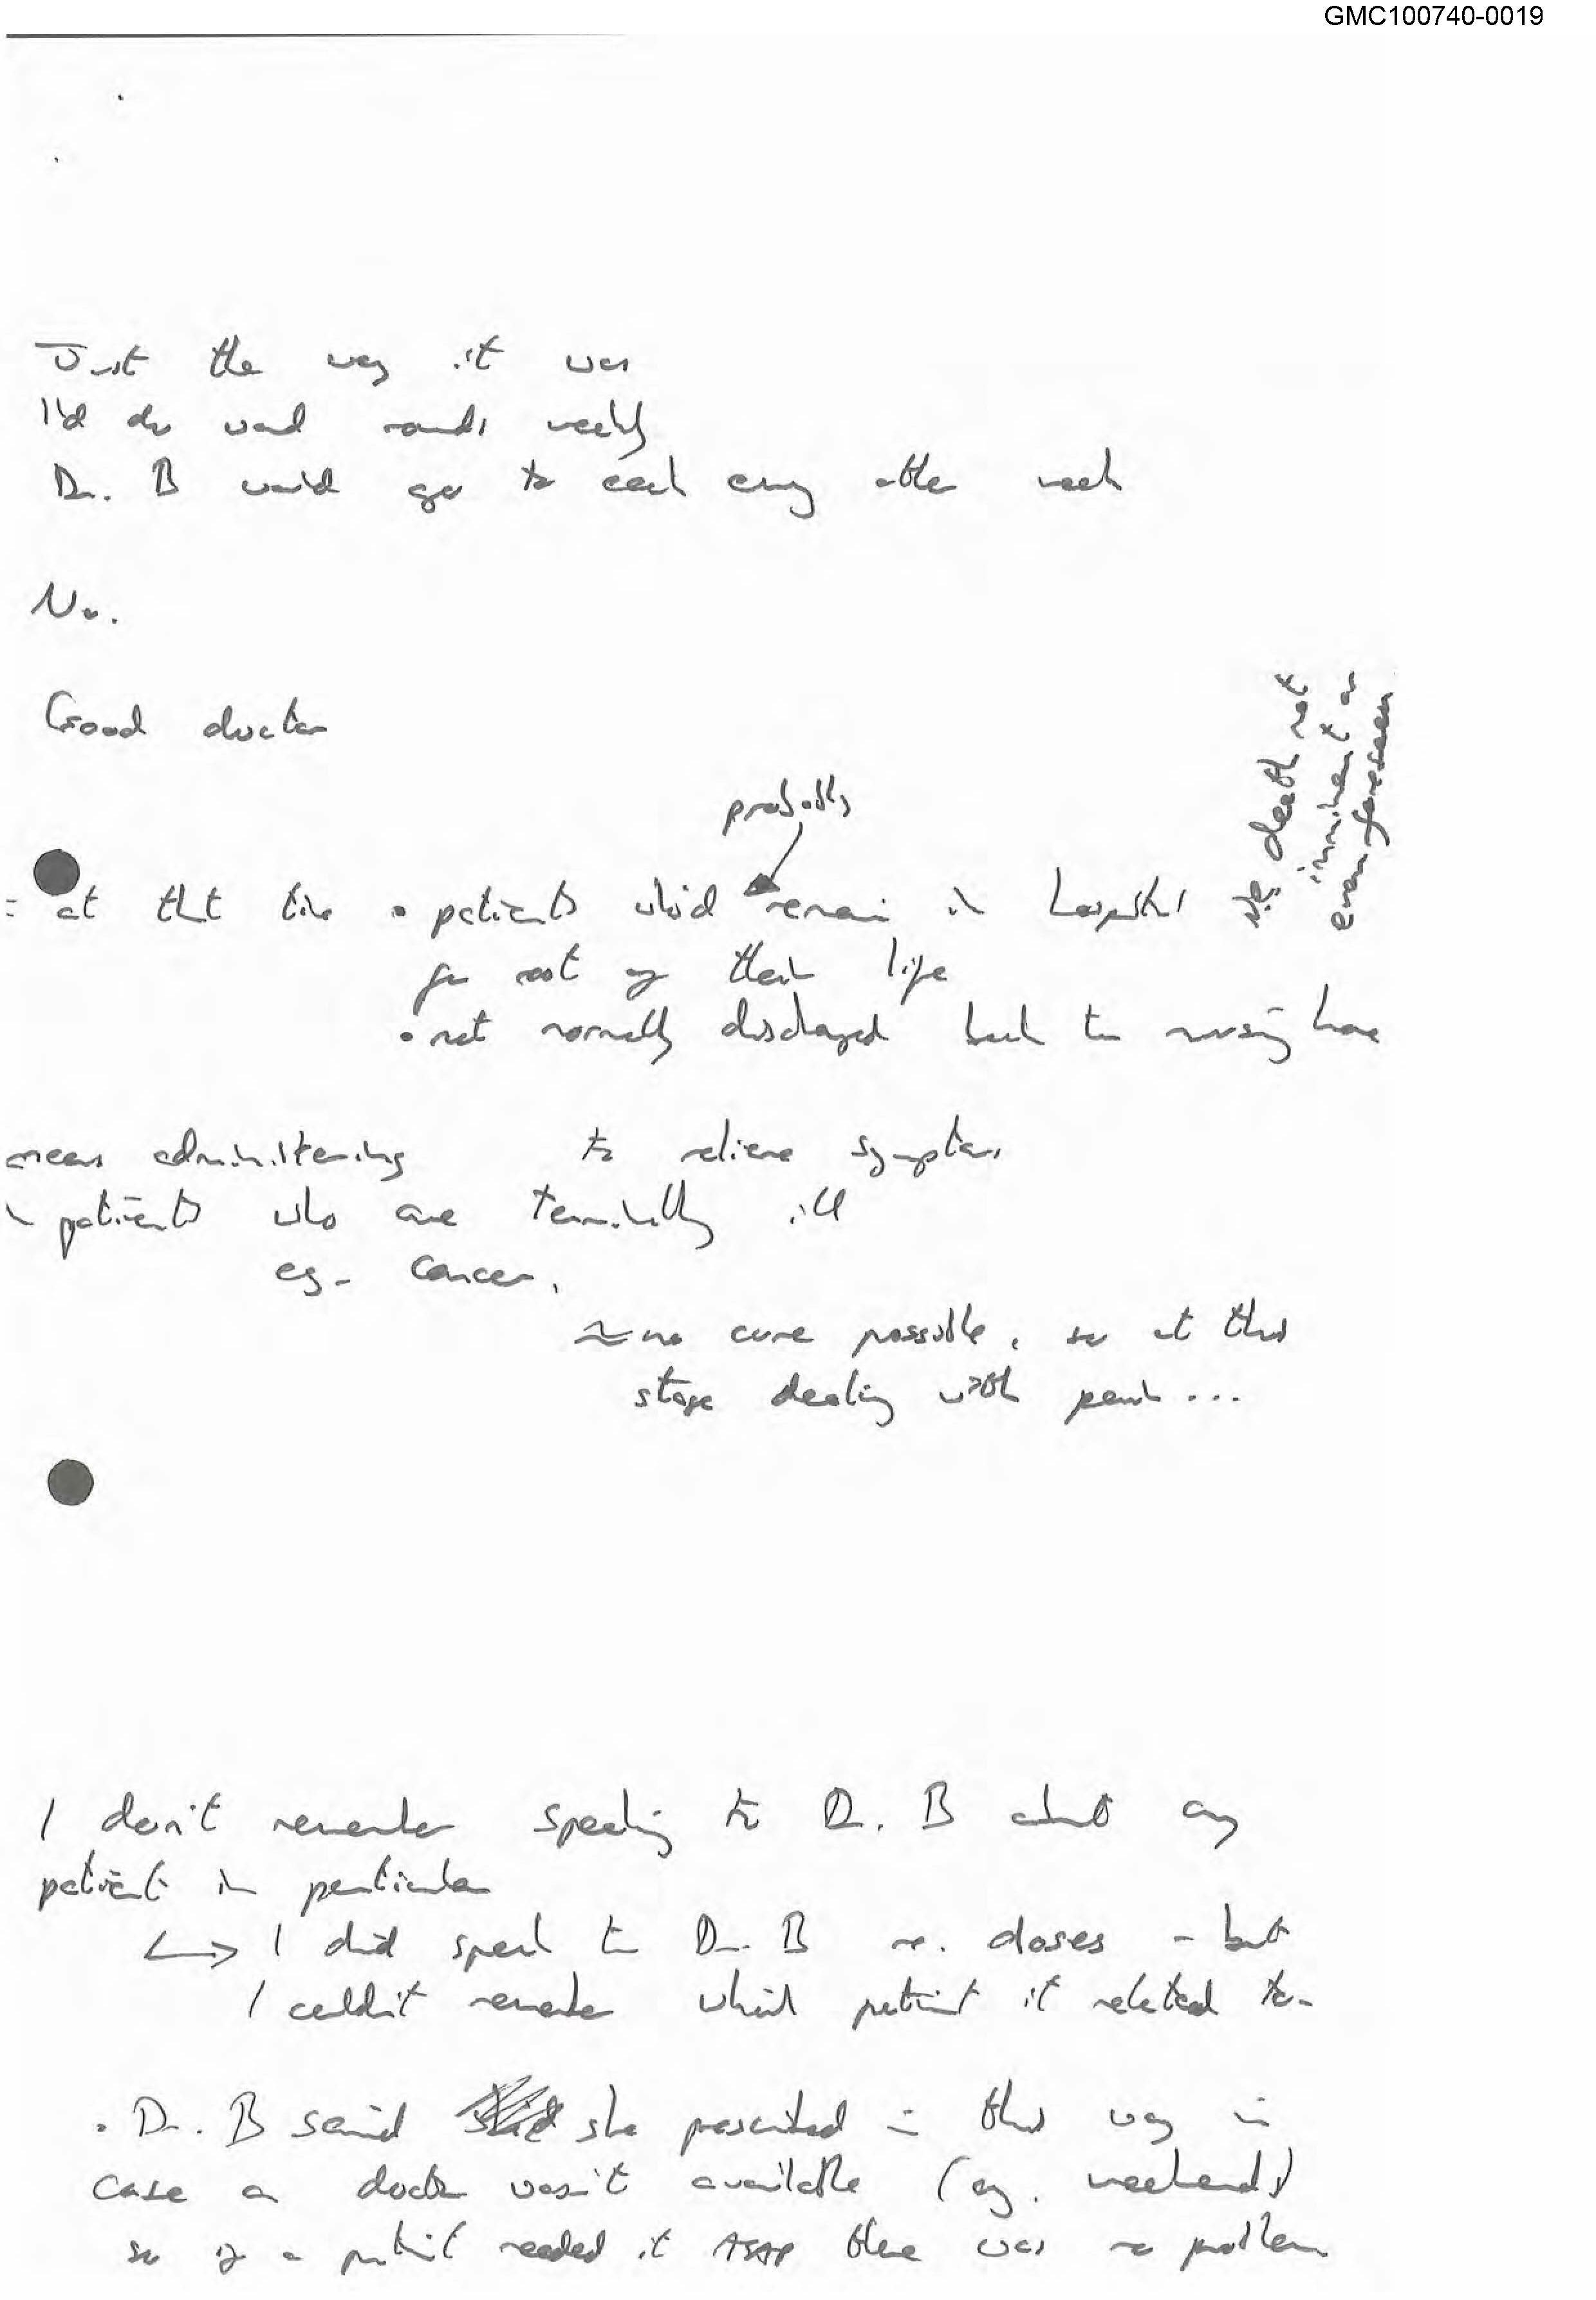 GMC100740-0019
Just the way it was
I'd do ward rounds weekly
Dr. B would go to each every other week
No.
Good doctor
probably
= at tht time • patients would remain in hospital
for rest of their life
• not normally discharged back to nursing home
death not
imminent or
even foreseen
means administering to relieve symptoms
in patients who are terminally ill
eg. cancer.
no cure possible, so at this
stage dealing with pain...
I don't remember speaking to Dr. B about any
patient in particular
↳ I did speak to Dr. B re. doses - but
I couldn't remember which patient it related to.
• Dr. B said she prescribed in this way in
case a doctor wasn't available (eg. weekends)
so if a patient needed it ASAP there was no problem